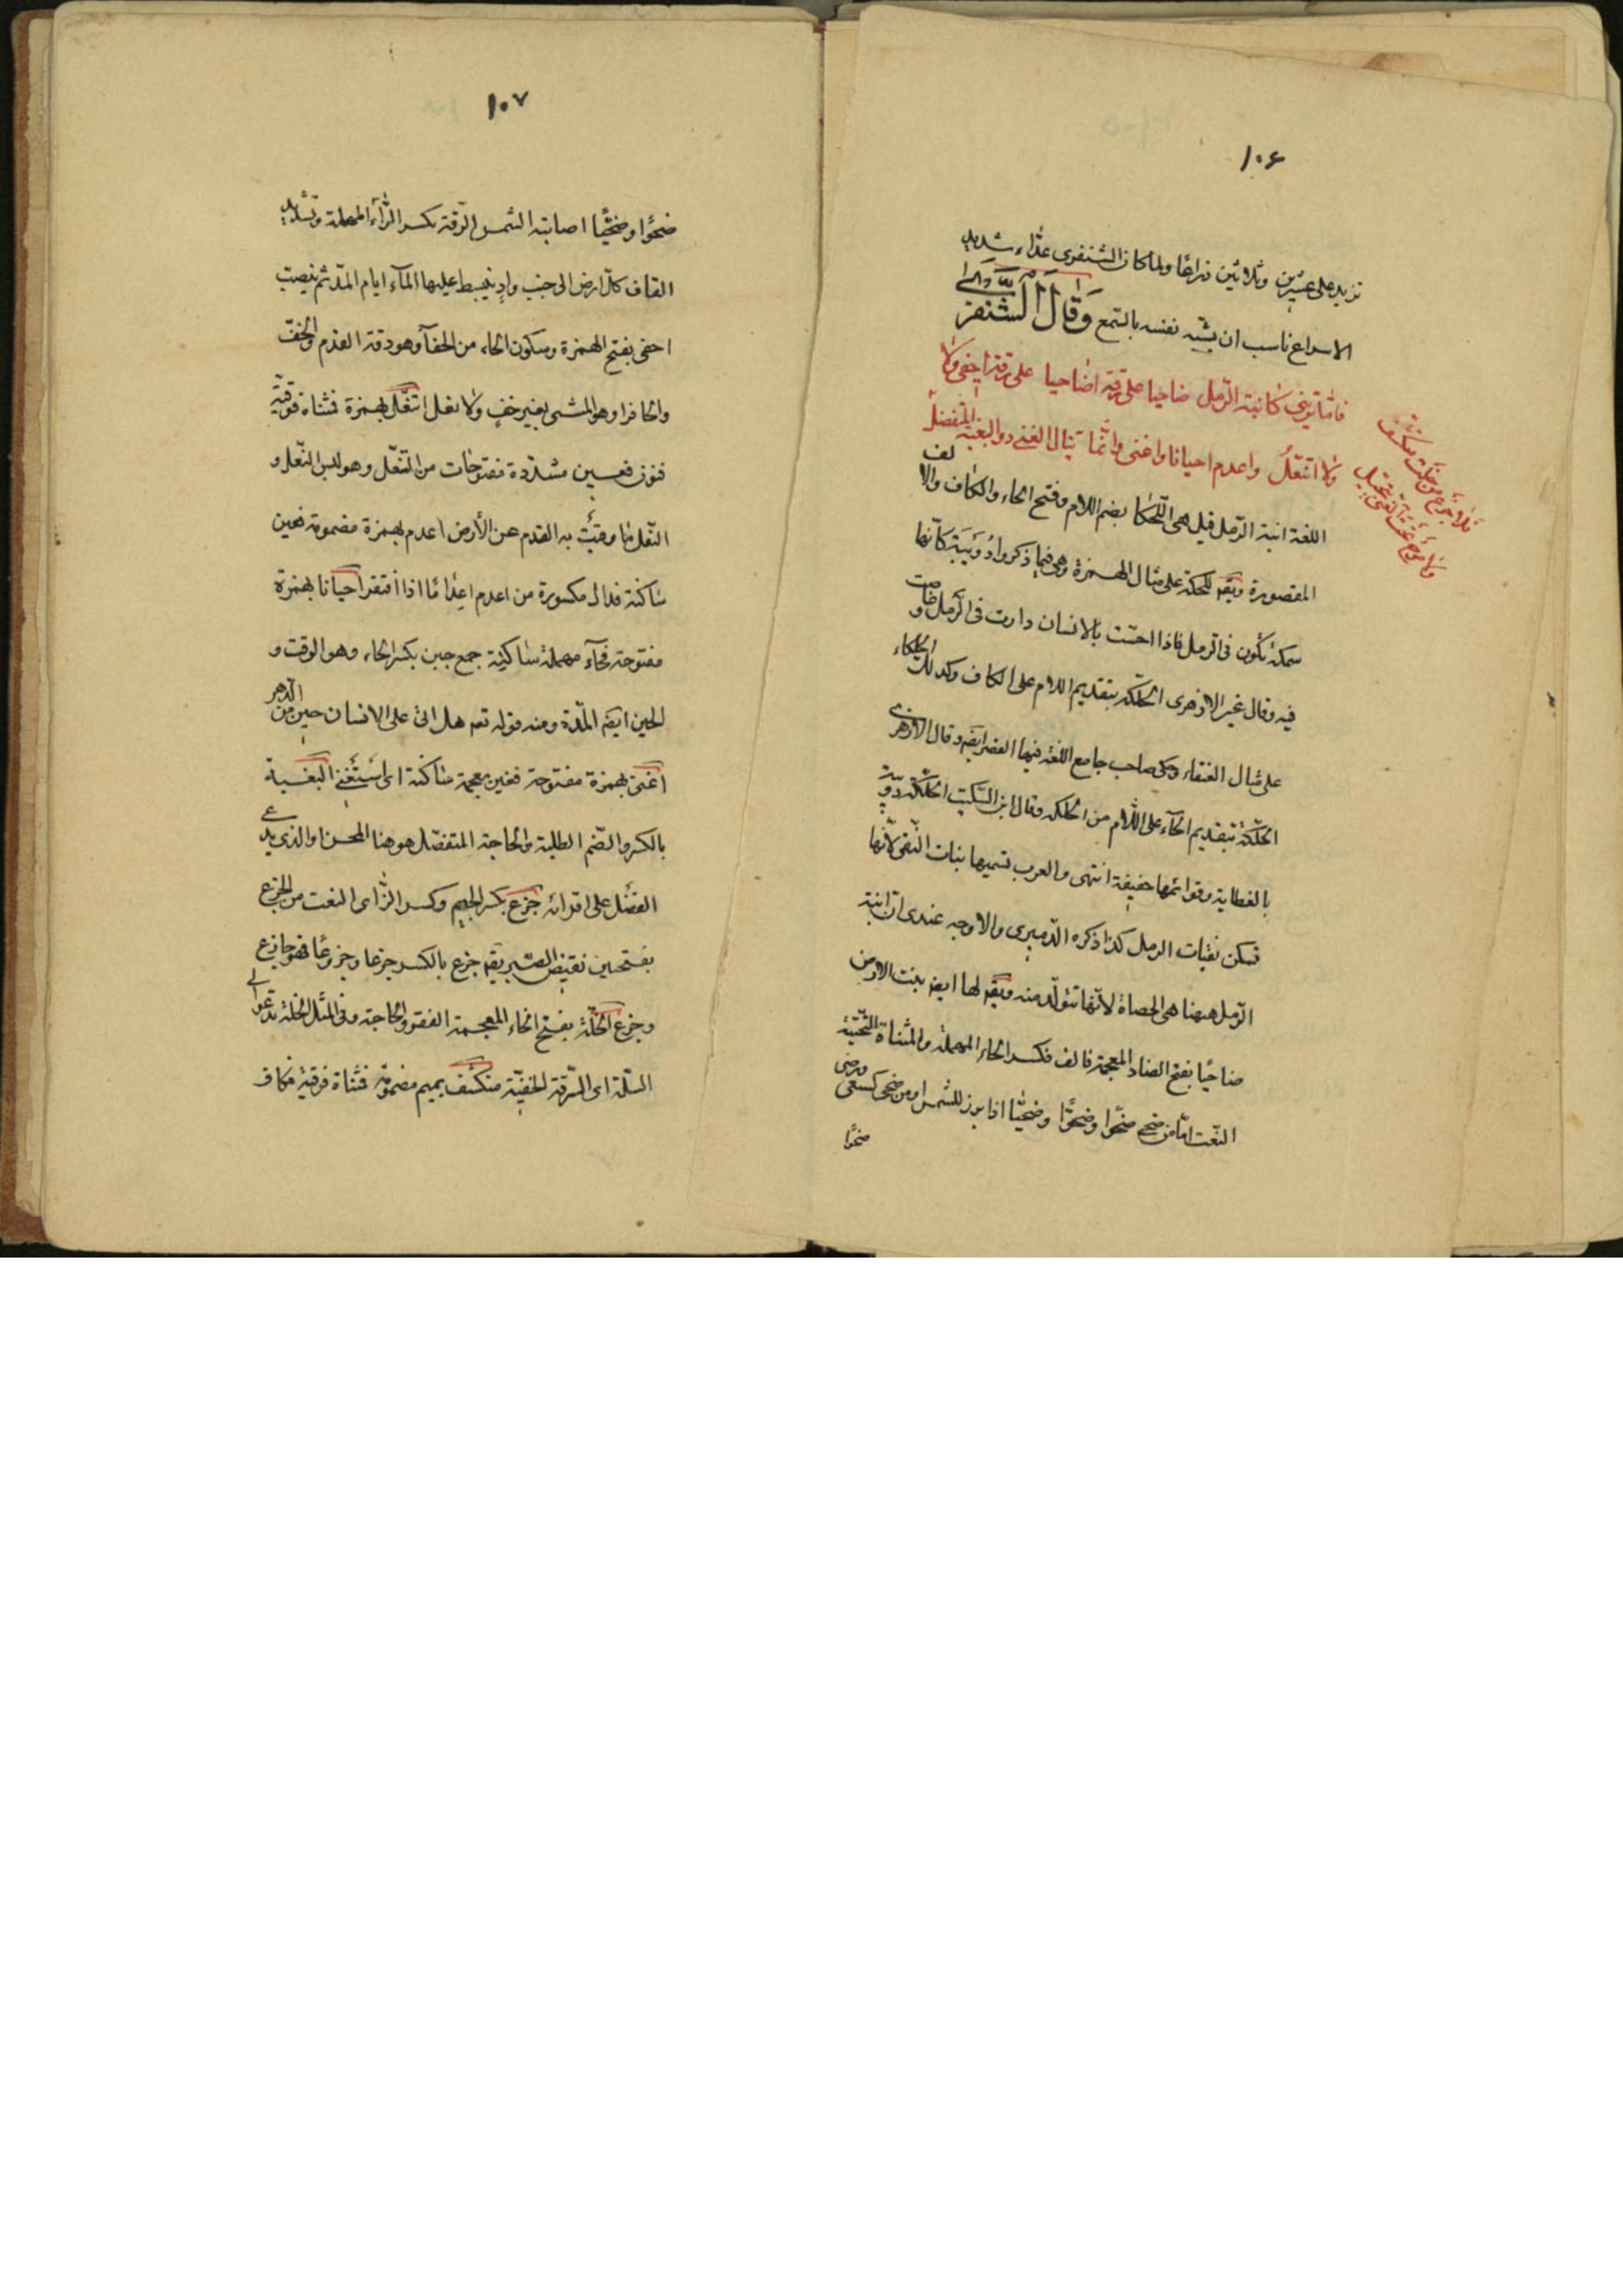 ١٠٦
تزيد على عشرين وثلاثين ذراعًا ولما كان الشنفرى عدّاء شديد
الاسراع ناسب ان يشبّه نفسه بالسّمع وَقَالَ الشنفرى
فامّا ترينى كابنة الرّمل ضاحيا على رقّة احفى ولا
ولا اتنعّلُ واعدم احيانا واغنى وانّما ينال الغنى ذو البغية المتفضّل
فلا جزع من خلّة متكشّف
ولا مرح تحت الغنى اتخيّل
اللغة ابنة الرّمل قيل هى اللّحكا بضم اللام وفتح الحاء والكاف والالف
المقصورة ويقه للحكة على مثال الهمزة وهى فيما ذكروا دُوَيبَة كانّها
سمكة تكون فى الرّمل فاذا احسّت بالانسان دارت فى الرّمل وغاصت
فيه وقال غير الازهرى الحلكة بتقديم اللام على الكاف وكذلك الحلكاء
على مثال العنقاء وحكى صاحب جامع اللغة فيها القصر ايضه وقال الازهرى
الحلكة بتقديم الحآء على اللّام من الحلكه وقال ابن السّكيت الحلكة دويبّة
بالغطاية وقوائمها خفيفة انتهى والعرب تسميها بنات النّقى لانّها
تسكن نقيات الرمل كذا ذكره الدّميرى والاوجه عندى ان ابنة
الرّمل هيهنا هى الحصاة لانّها تتولّد منه ويقه لها ايضه بنت الارض
ضاحيًا بفتح الضاد المعجمة فالف فكسر الحاء المهملة والمثناة التّحتيّة
النّعت امّا من ضحى ضحوًا وضحوًّا وضحيّا اذا برز للشمس او من ضحى كسعى ورضى
ضحوًا
١٠٧
ضحوًا وضحيًّا اصابته الشمس الرّقة بكسر الرّآء المهملة وتشديد
القاف كلّ ارض الى جنب وادٍ ينبسط عليها المآء ايام المدّ ثم ينصبّ
احفى بفتح الهمزة وسكون الحاء من الحفآ وهو دقة القدم والخفّ
والحافر او هو المشى بغير خفٍ ولا نعل اتنعّل بهمزة فمثناة فوقيّة
فنون فعين مشدّدة مفتوحات من التنعّل وهو لبس النّعل و
النّعل ما وقيت به القدم عن الأرض اعدم بهمزة مضمومة فعين
ساكنة فدال مكسورة من اعدم اعدامًا اذا افتقر احيانا بهمزة
مفتوحة فحآء مهملة ساكنة جمع حين بكسر الحاء وهو الوقت و
الحين ايضه المدّة ومنه قوله تعه هل اتى على الانسان حين من الدّهر
اغنى بهمزة مفتوحة فغين معجمة ساكنة اى استغنى البغية
بالكسر والضّم الطلبة والحاجة المتفضّل هو هنا المحسن او الذى يدّعى
الفضل على اقرانه جزع بكسر الجيم وكسر الزّاى النعت من الجزع
بفتحتين نقيض الصّبر يقه جزع بالكسر جزعا وجزوعًا فهو جازع
وجزع الخلّة بفتح الخاء المعجمة الفقر والحاجة وفى المثل الخلّة تدعو الى
السّلّة اى السّرقة الخفيّة متكشّف بميم مضمومة فمثناة فوقيّة فكاف